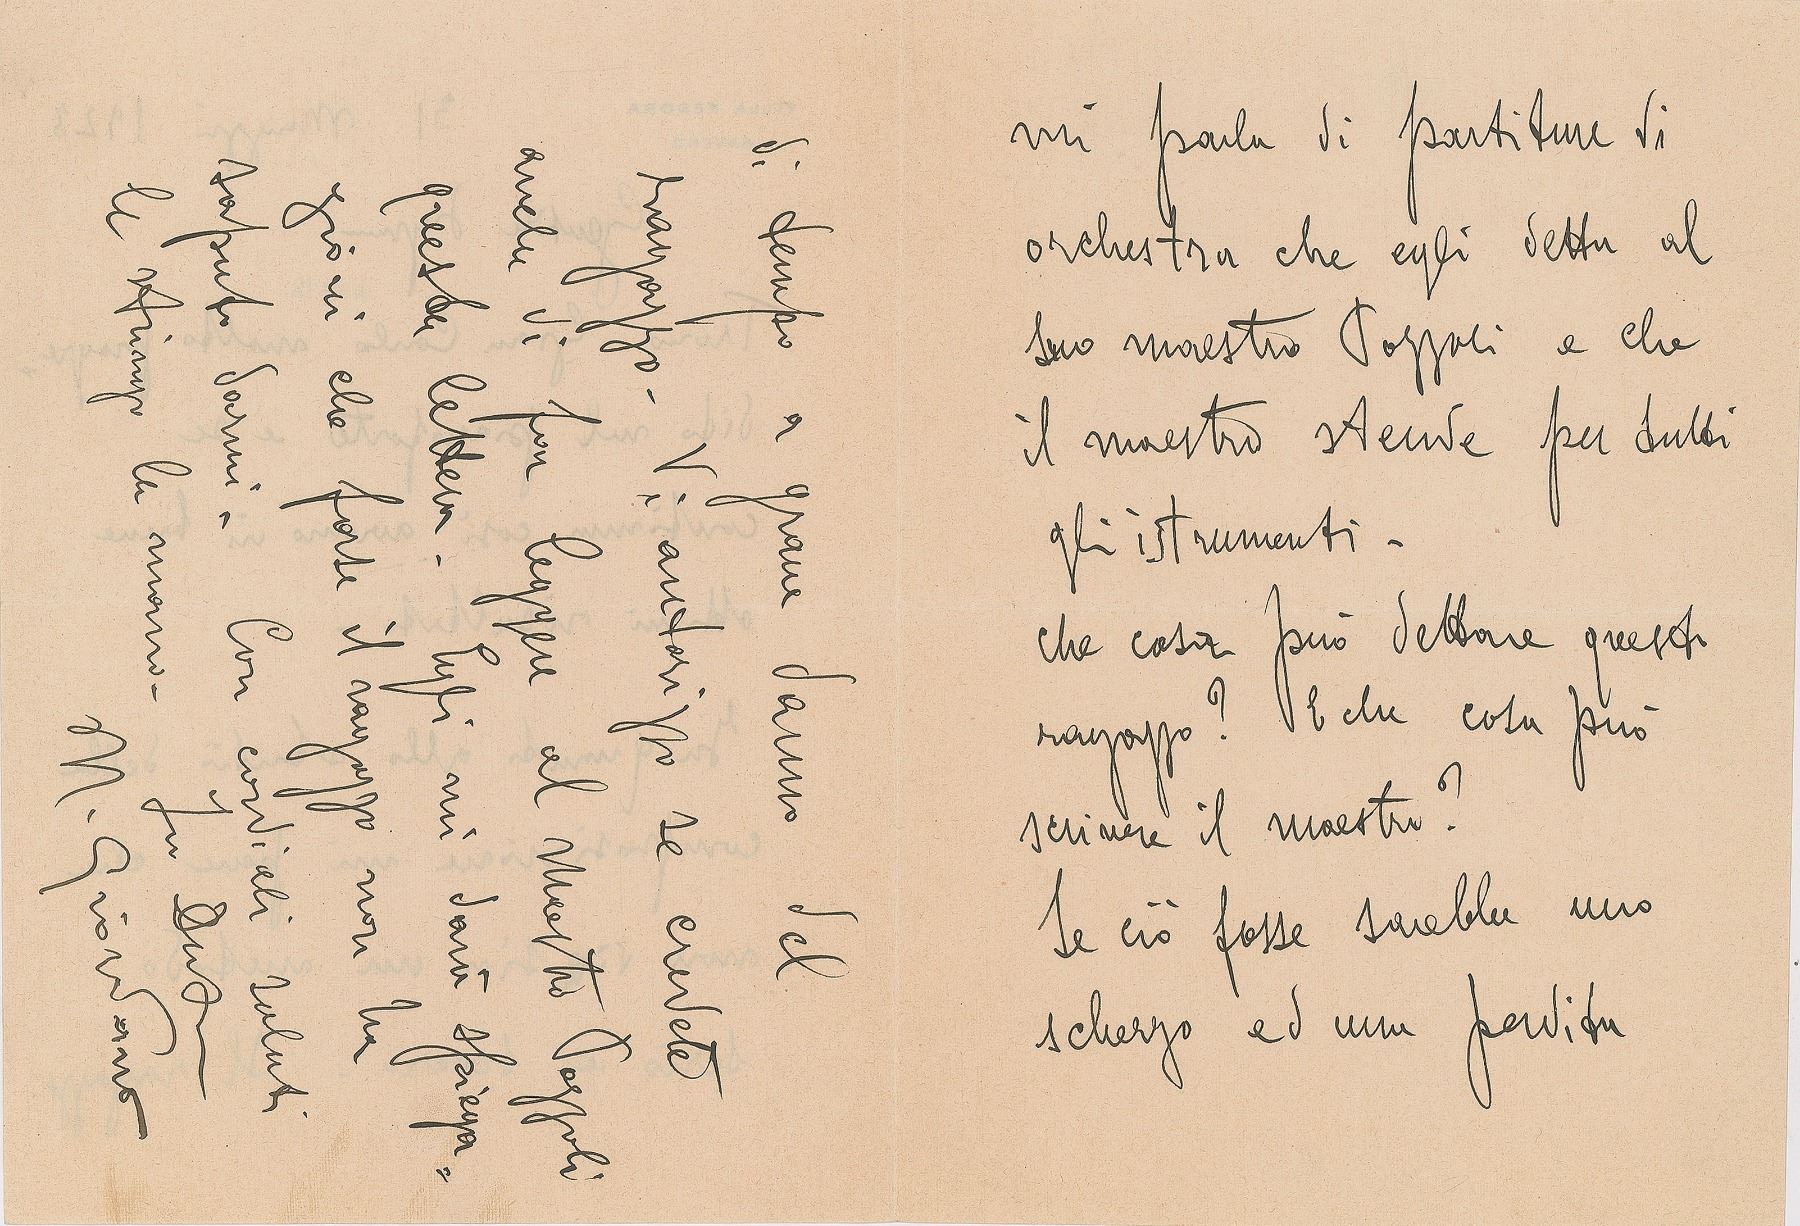 mi parla di partiture di
orchestra che egli detta al
suo maestro Pozzoli e che
il maestro stende per tutti
gli istrumenti -
che cosa può dettare questo
ragazzo? E che cosa può
scrivere il maestro?
Se ciò fosse sarebbe uno
scherzo ed una perdita
di tempo a grave danno del
ragazzo - Vi autorizzo se credete
anche di far leggere al Maestro Pozzoli
questa lettera. Egli mi darà spiega=
zioni che forse il ragazzo non ha
saputo darmi. Con cordiali saluti
le stringo la mano -
U. Giordano